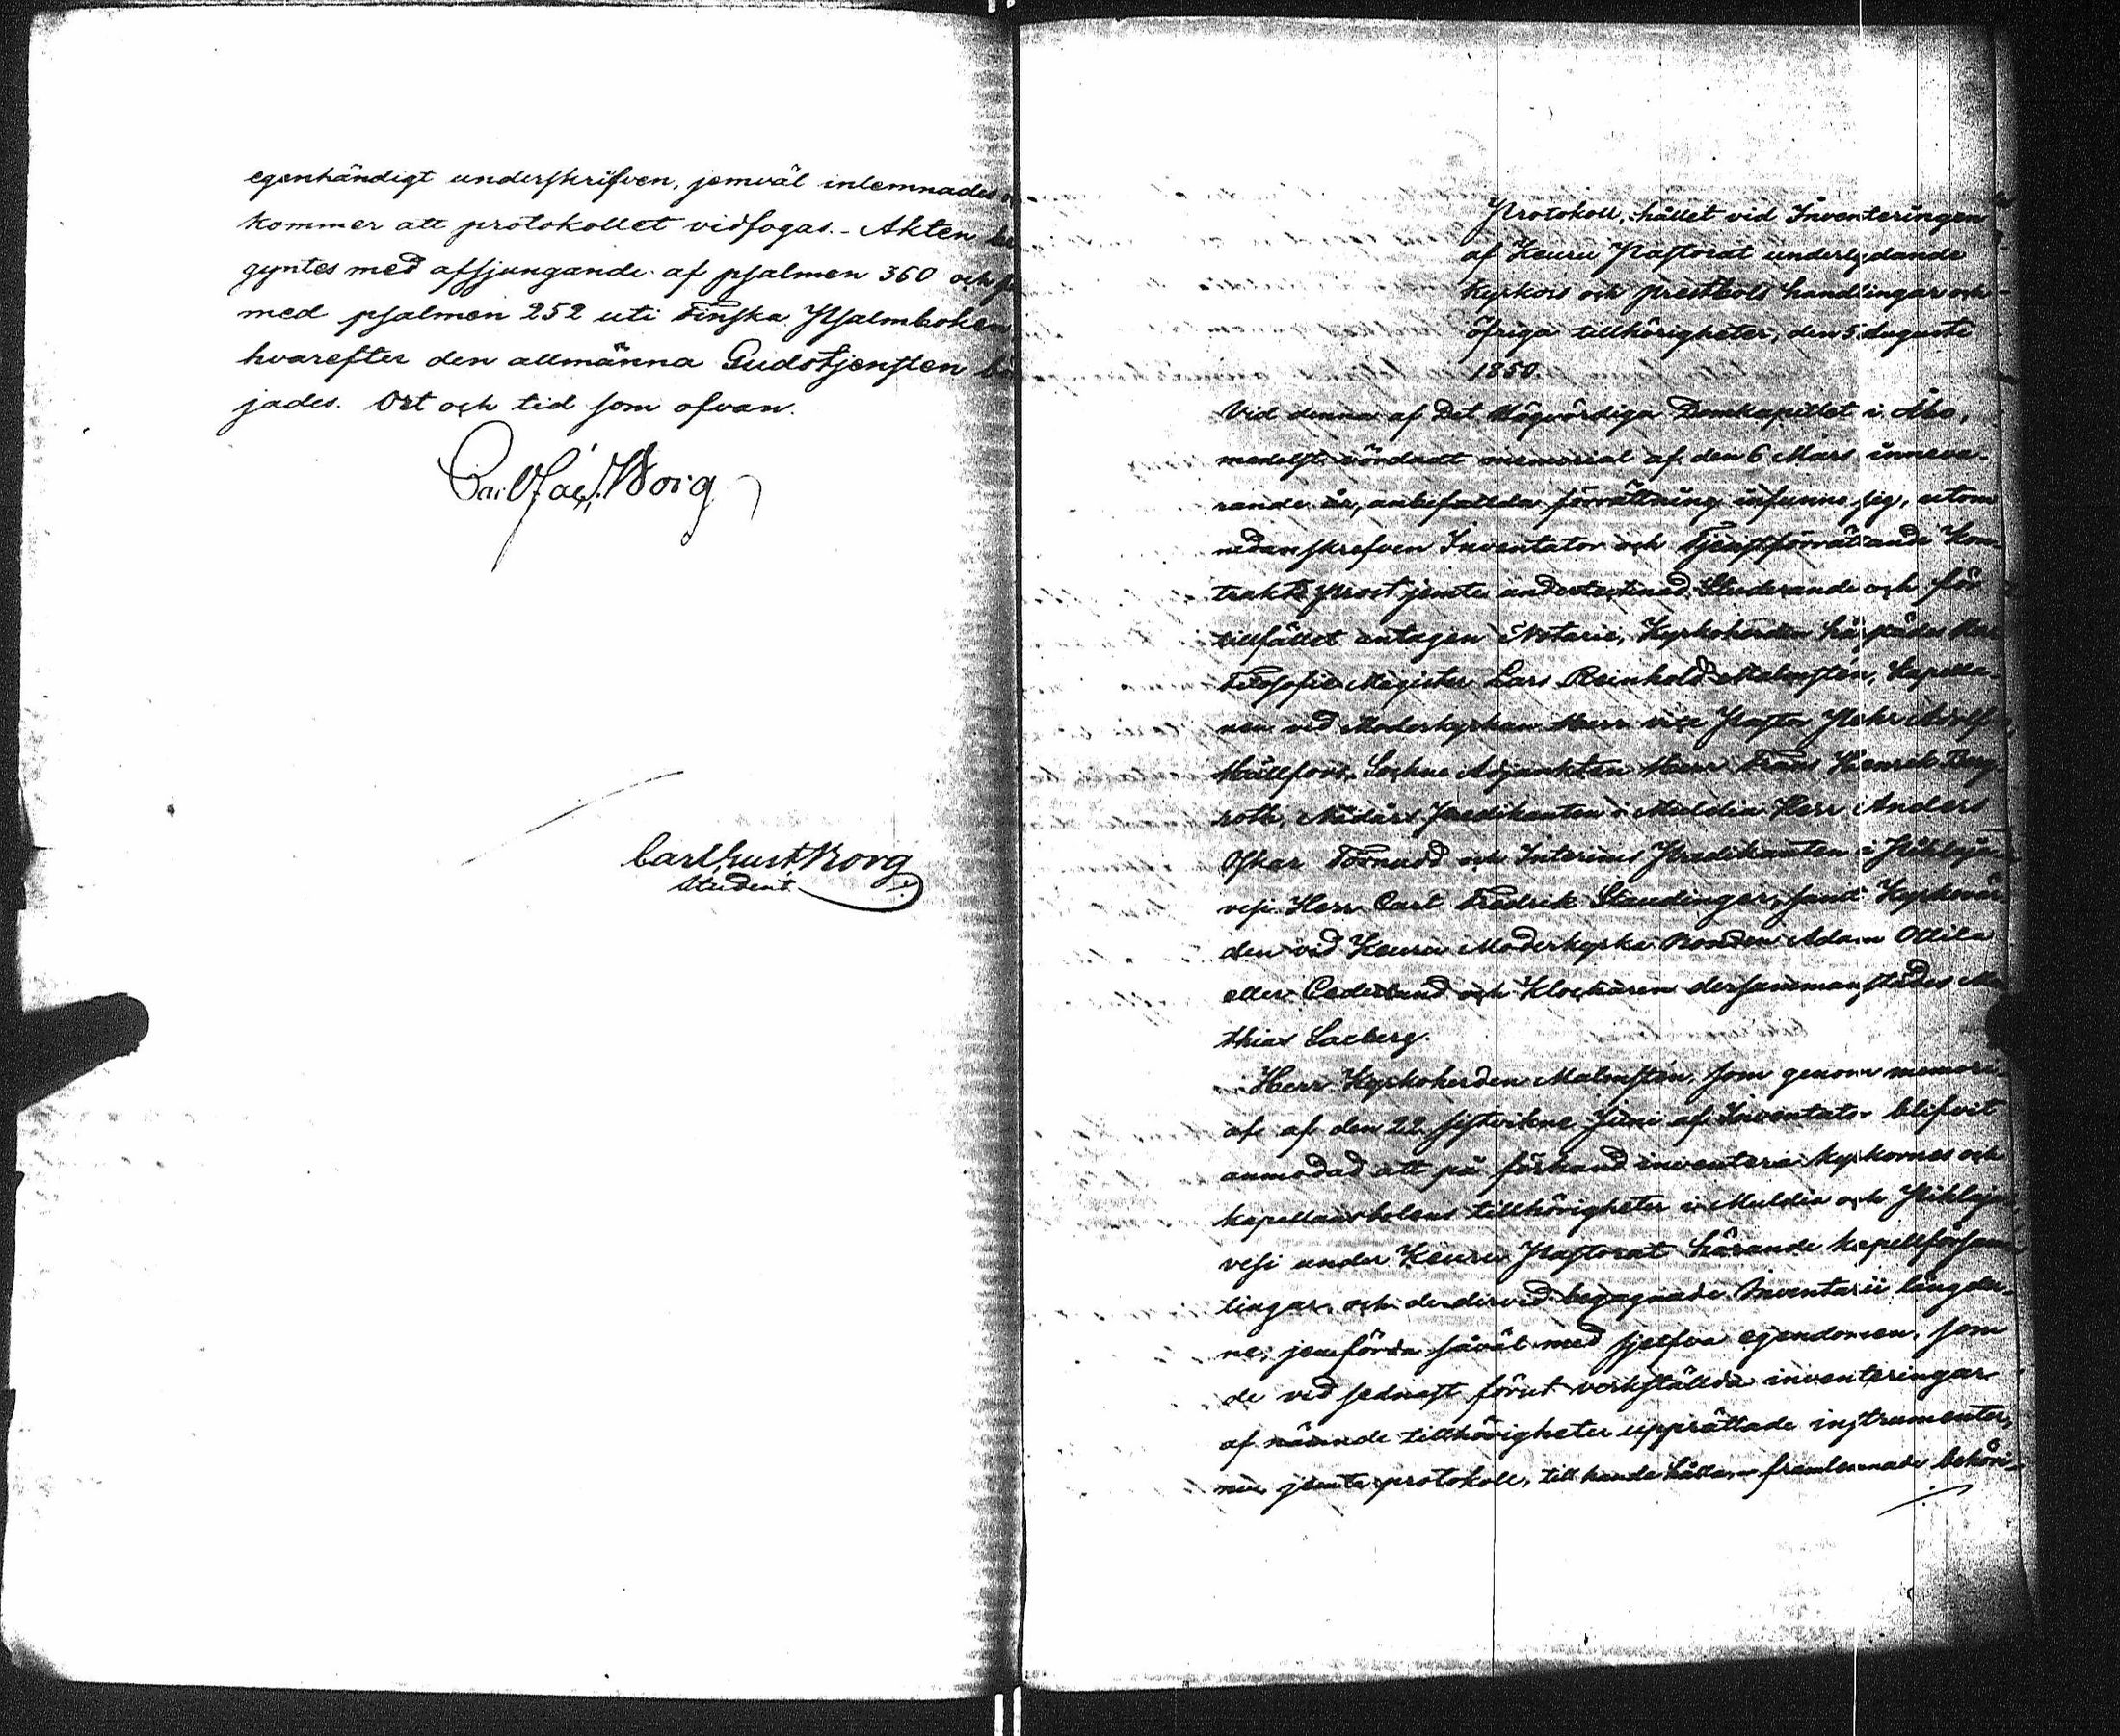 egenhändigt underskrifven, jemväl inlemnades
kommer att protokollet vidfogas. - Akten be
gyntes med afsjungande af psalmen 360 och
med psalmen 252 uti Finska Psalmboken
hvarefter den allmänna Gudstjensten bör
jades. Ort och tid som ofvan.
Carl Jac. Borg
Carl Gust. Borg
Student
Protokoll, hållet vid Inventeringen
af Keuru Pastorat underlydande
Kyrkors och prestbols handlingar och
öfriga tillhörigheter, den 5 Augusti
1850.
Vid denna af Det Högvördiga Domkapitlet i Åbo,
medelst vördadt memorial af den 6 Mars inneva-
rande år, anbefallda förrättning infunno sig, utom
nedanskrefven Inventator och Tjenstförrättande Kon-
trakts Prost jemte undertecknad Studerande och för
tillfället antagen Notarie, Kyrkoherden härstädes Herr
Filosofie Magister Lars Reinhold Malmstén, Kapella-
nen vid Moderkyrkan Herr vice Pastor Pehr Adolf
Hällfors, Sockne Adjunkten Herr Frans Henrik Berg-
roth, Nådårs Predikanten i Multia Herr Anders
Oskar Törnudd och Interims Predikanten i Pihlaja-
vesi Herr Carl Fredrik Staudinger, samt Kyrkovär
den vid Keuru Moderkyrka Bonden Adam Ottila
eller Cederlund och Klockaren dersammanstädes Ma
thias Saeberg.
Herr Kyrkoherden Malmstén, som genom memori-
al af den 22 sistvikne Juni af Inventator blifvit
anmodad att på förhand inventera kyrkornes och
kapellansbolens tillhörigheter i Multia och Pihlaja-
vesi under Keuru Pastorat hörande kapellförsam
lingar, och de dervid begagnade Inventarii längder-
ne, jemförda såväl med sjelfva egendomen, som
de vid sednast förut verkställda inventeringar
af nämnde tillhörigheter upprättade instrumenter,
ne, jemte protokoll, till handa hålla, - framlemnade behöri-